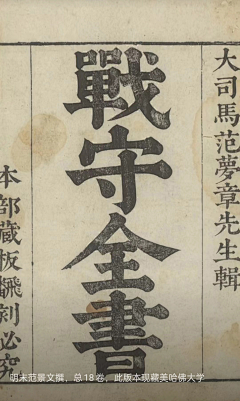 大司馬范夢章先生輯
戰守全書
本部藏板飜刻必究
明末范景文撰，总18卷，此版本现藏美哈佛大学